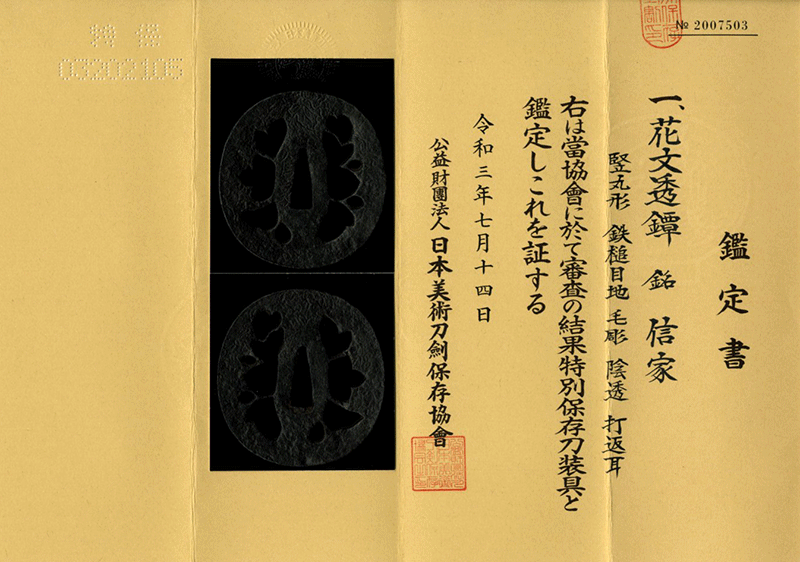 № 2007503
鑑定書
一、花文透鐔 銘 信家
竪丸形 鉄槌目地 毛彫 陰透 打返耳
右は當協會に於て審査の結果特別保存刀装具と
鑑定しこれを証する
令和三年七月十四日
公益財團法人 日本美術刀劍保存協會
03202105